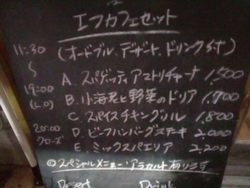 エフカフェセット
(オードブル、デザート、ドリンク付)
11:30
〜
19:00
(L.O)
20:00
クローズ
A. スパゲッティアマトリチャーナ 1,500
B. 小海老と野菜のドリア 1,900
C. スパイスチキングリル 1,800
D. ビーフハンバーグステーキ 2,000
E. ミックスパエリア 2,200
◎スペシャルメニュー アラカルト有ります
Dessert